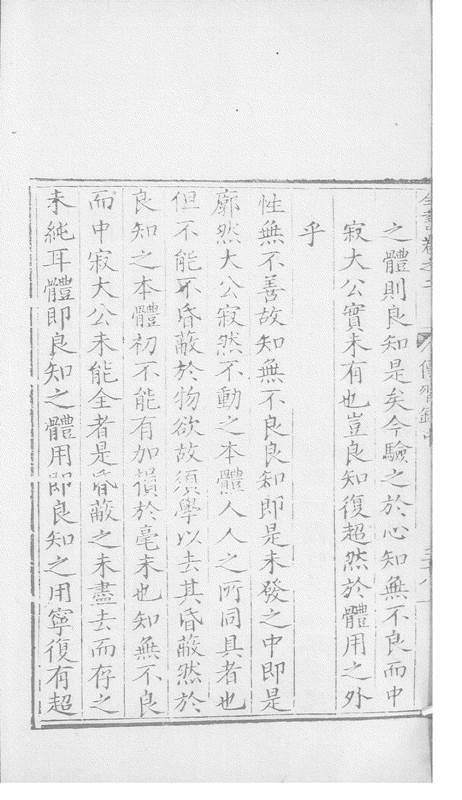 全書卷之二 傳習錄中
之體則良知是矣今驗之於心知無不良而中
寂大公實未有也豈良知復超然於體用之外
乎
性無不善故知無不良良知即是未發之中即是
廓然大公寂然不動之本體人人之所同具者也
但不能不昏蔽於物欲故須學以去其昏蔽然於
良知之本體初不能有加損於毫末也知無不良
而中寂大公未能全者是昏蔽之未盡去而存之
未純耳體即良知之體用即良知之用寧復有超